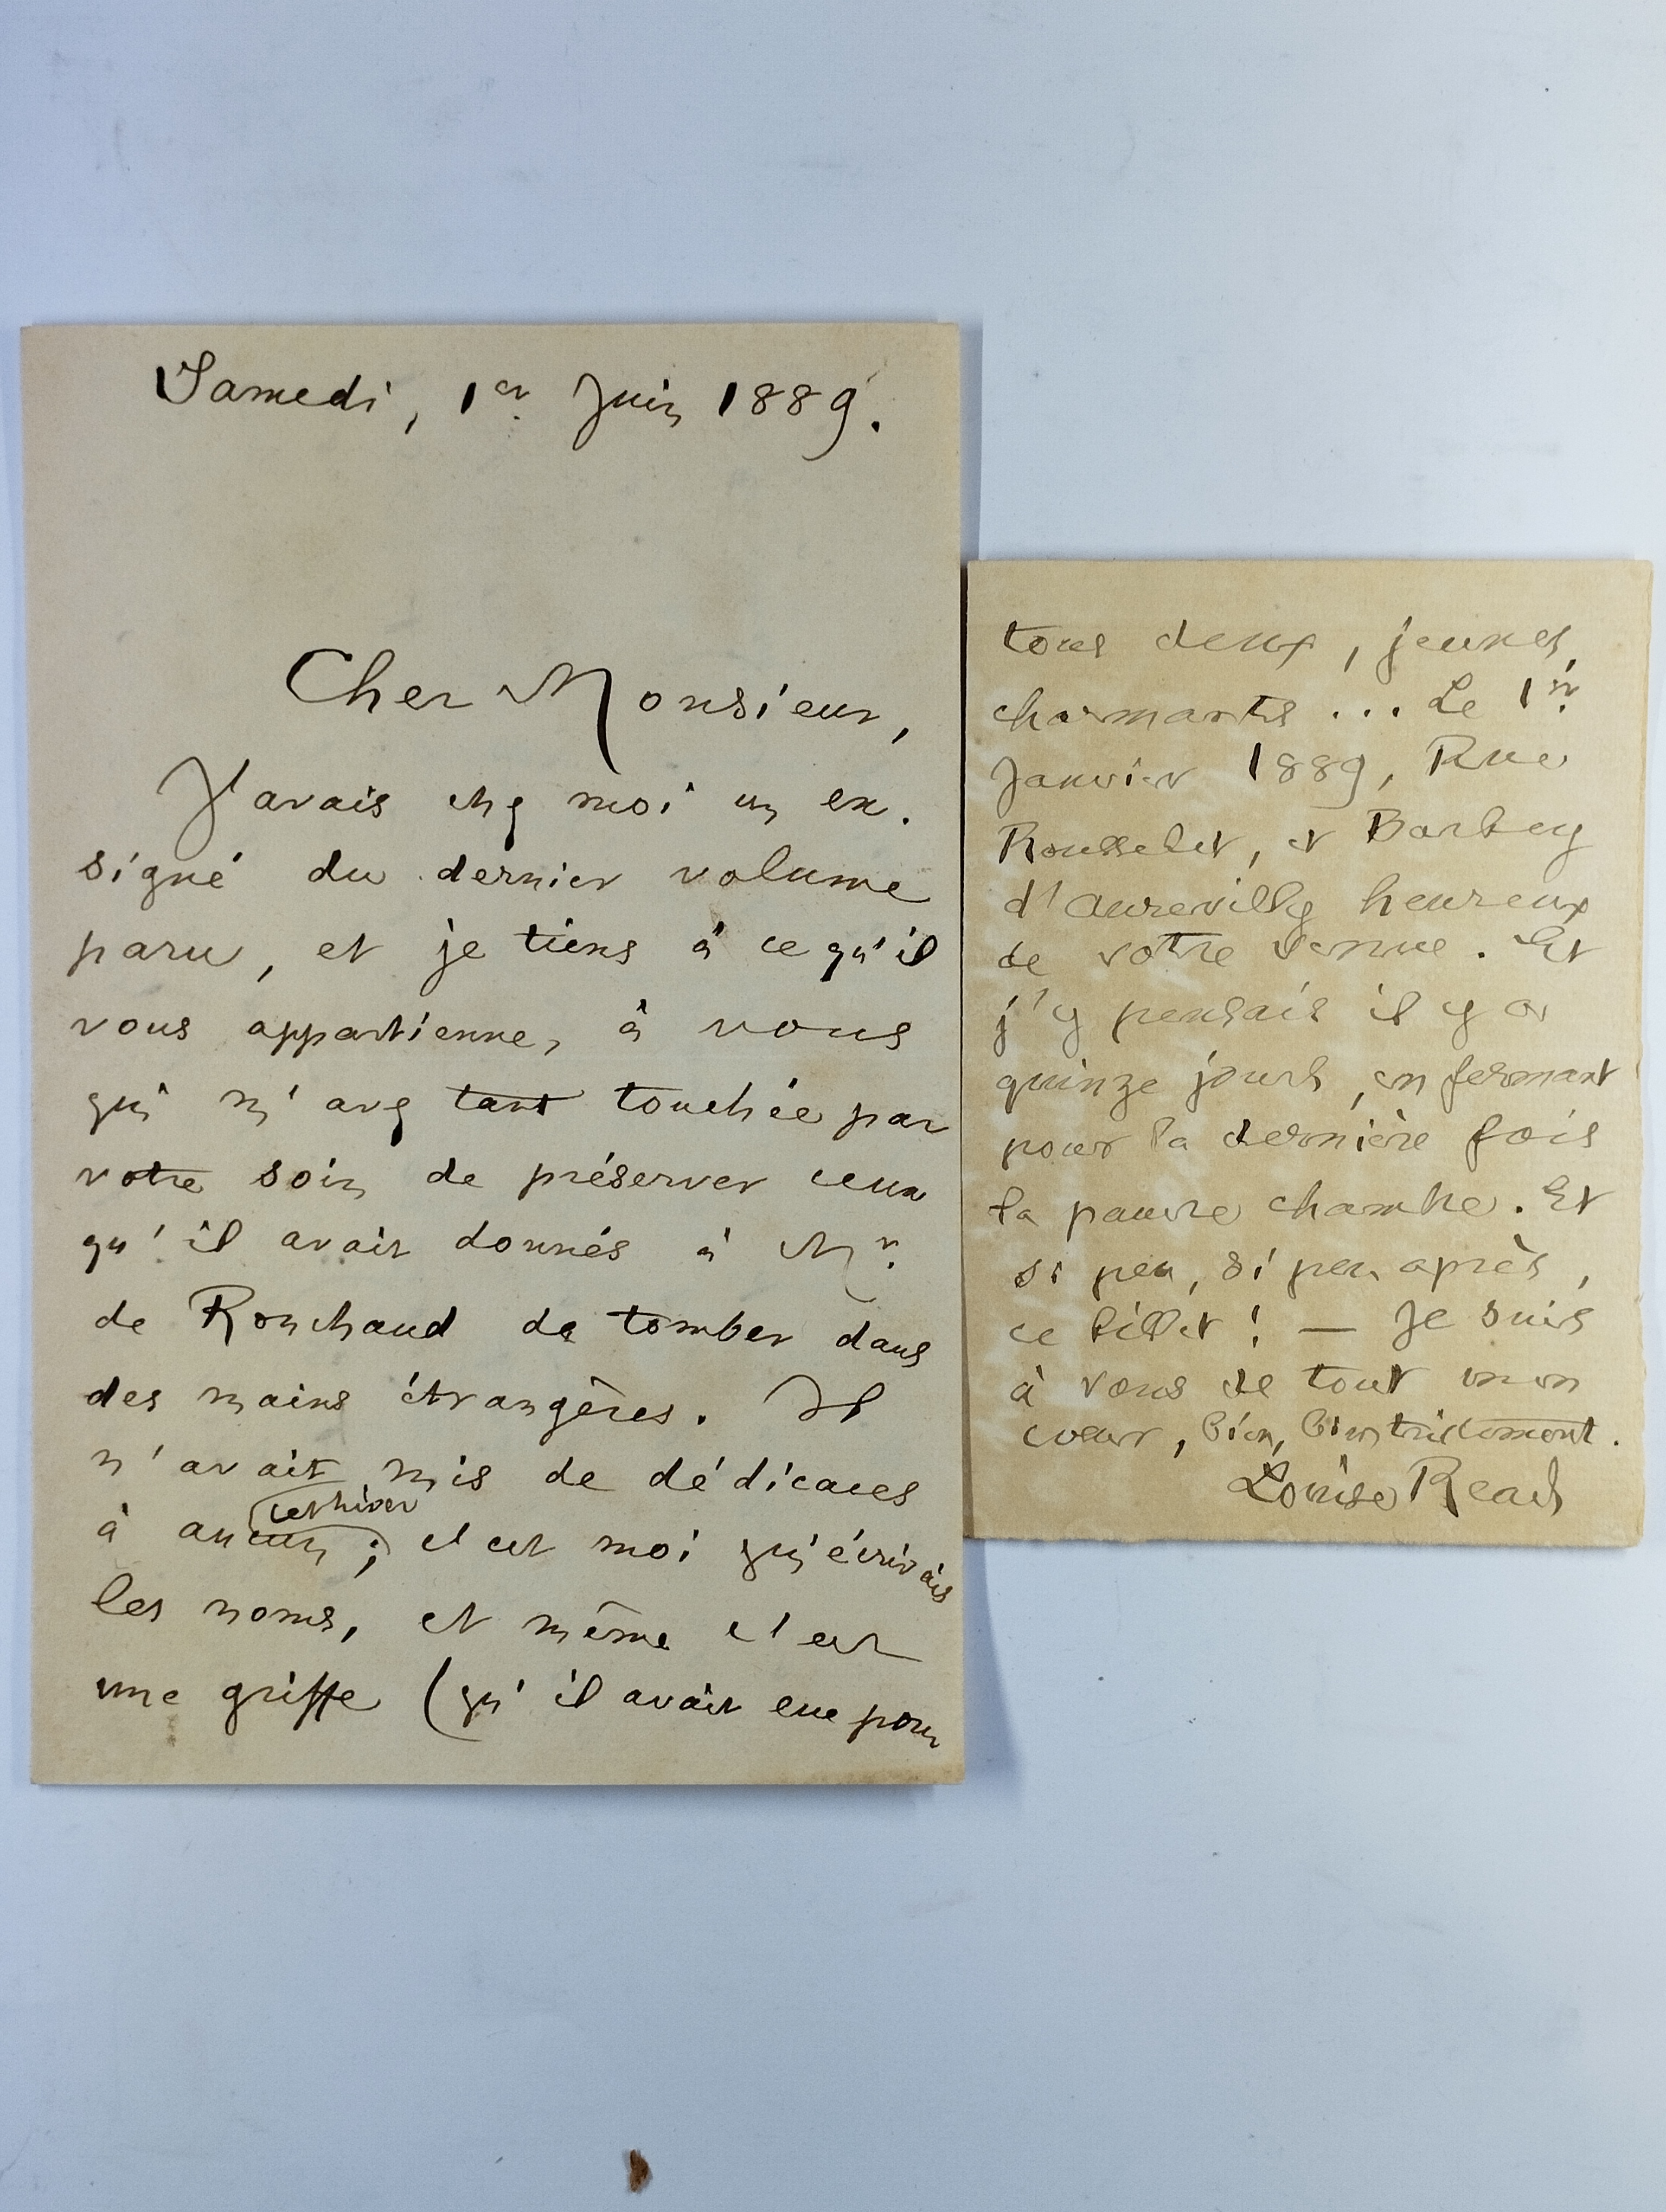 Samedi, 1er Juin 1889.
Cher Monsieur,
J'avais chez moi un ex.
signé du dernier volume
paru, et je tiens à ce qu'il
vous appartienne, à vous
qui m'avez tant touchée par
votre soin de préserver ceux
qu'il avait donnés à Mr.
de Ronchaud de tomber dans
des mains étrangères. Il
n'avait mis de dédicaces
cet hiver
à aucun ; c'est moi qui écrivais
les noms, et même c'est
une griffe (qu'il avait eue pour
tous deux, jeunes,
charmants ... Le 1er
Janvier 1889, Rue
Rousselet, et Barbey
d'Aurevilly heureux
de votre venue. Et
j'y pensais il y a
quinze jours, en fermant
pour la dernière fois
la pauvre chambre. Et
si peu, si peu après,
ce billet ! — Je suis
à vous de tout mon
cœur, bien, bien tristement.
Louise Read